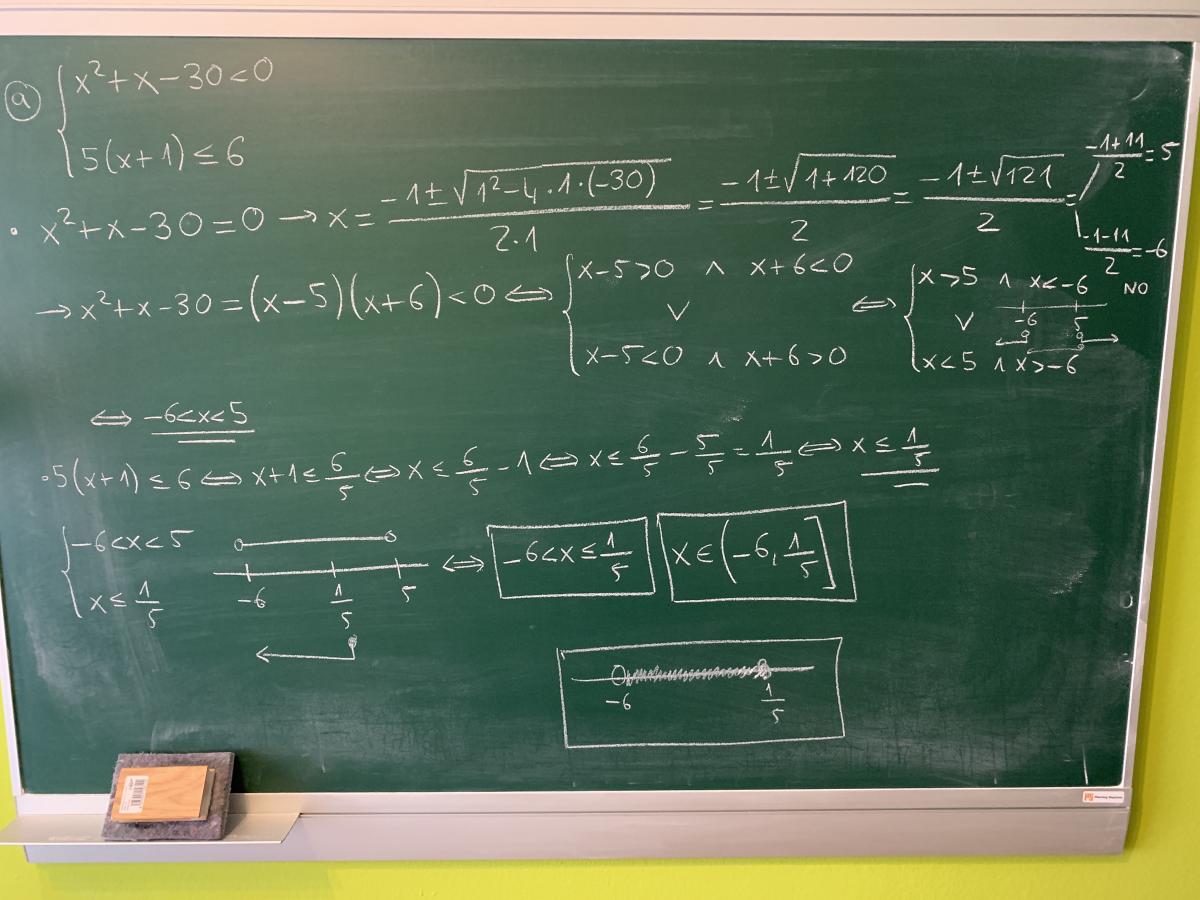 a { x²+x-30<0
5(x+1)≤6
· x²+x-30=0 → x= (-1±√(1²-4·1·(-30)))/(2·1) = (-1±√(1+120))/2 = (-1±√121)/2 = (-1+11)/2=5
(-1-11)/2=-6
→ x²+x-30=(x-5)(x+6)<0 ⇔ { x-5>0 ∧ x+6<0
∨
x-5<0 ∧ x+6>0
⇔ { x>5 ∧ x<-6 NO
∨ -6 5
x<5 ∧ x>-6
⇔ -6<x<5
·5(x+1)≤6 ⇔ x+1≤6/5 ⇔ x≤6/5-1 ⇔ x≤6/5-5/5=1/5 ⇔ x≤1/5
{ -6<x<5
x≤1/5
-6 1/5 5
⇔ -6<x≤1/5 x∈(-6,1/5]
-6 1/5